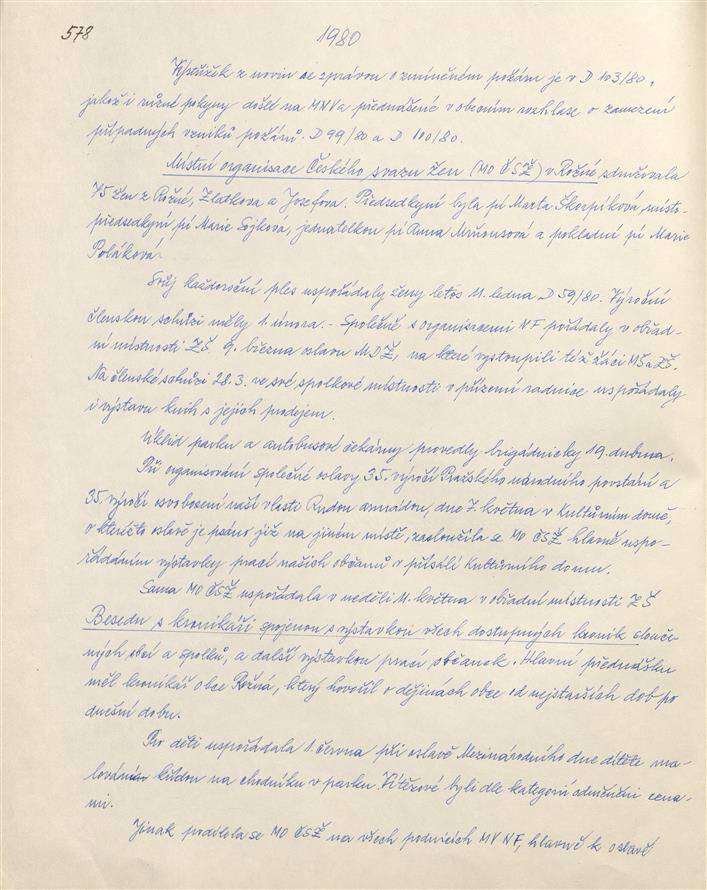 578
1980
Výstřižek z novin se zprávou o zmíněném požáru je v D 103/80,
jakož i různé pokyny došlé na MNV a přednášené v obecním rozhlase o zamezení
případných vzniků požárů. D 99/80 a D 100/80.
Místní organisace Českého svazu žen (MO ČSŽ) v Rožné sdružovala
75 žen z Rožné, Zlatkova a Josefova. Předsedkyní byla pí Marta Škorpíková, místo-
předsedkyní pí Marie Sojková, jednatelkou pí Anna Mrňousová a pokladní pí Marie
Poláková.
Svůj každoroční ples uspořádaly ženy letos 11. ledna D 59/80. Výroční
členskou schůzi měly 1. února. - Společně s organisacemi NF pořádaly v obřad-
ní místnosti ZŠ 9. března oslavu MDŽ, na které vystoupili též žáci MŠ a ZŠ.
Na členské schůzi 28.3. ve své spolkové místnosti v přízemí radnice uspořádaly
i výstavu knih s jejich prodejem.
Úklid parku a autobusové čekárny provedly brigádnicky 19. dubna.
Při organisování společné oslavy 35. výročí Pražského národního povstání a
35. výročí osvobození naší vlasti Rudou armádou, dne 7. května v Kulturním domě,
o kterážto oslavě je psáno již na jiném místě, zasloužila se MO ČSŽ hlavně uspo-
řádáním výstavky prací našich občanů v přísálí Kulturního domu.
Sama MO ČSŽ uspořádala v neděli 11. května v obřadní místnosti ZŠ
Besedu s kronikáři spojenou s výstavkou všech dostupných kronik slouče-
ných obcí a spolků, a další výstavkou prací občanek. Hlavní přednášku
měl kronikář obce Rožná, který hovořil o dějinách obce od nejstarších dob po
dnešní dobu.
Pro děti uspořádala 1. června při oslavě Mezinárodního dne dítěte ma-
lování křídou na chodníku v parku. Vítězové byli dle kategorií odměněni cena-
mi.
Jinak podílela se MO ČSŽ na všech podnicích MV NF, hlavně k oslavě